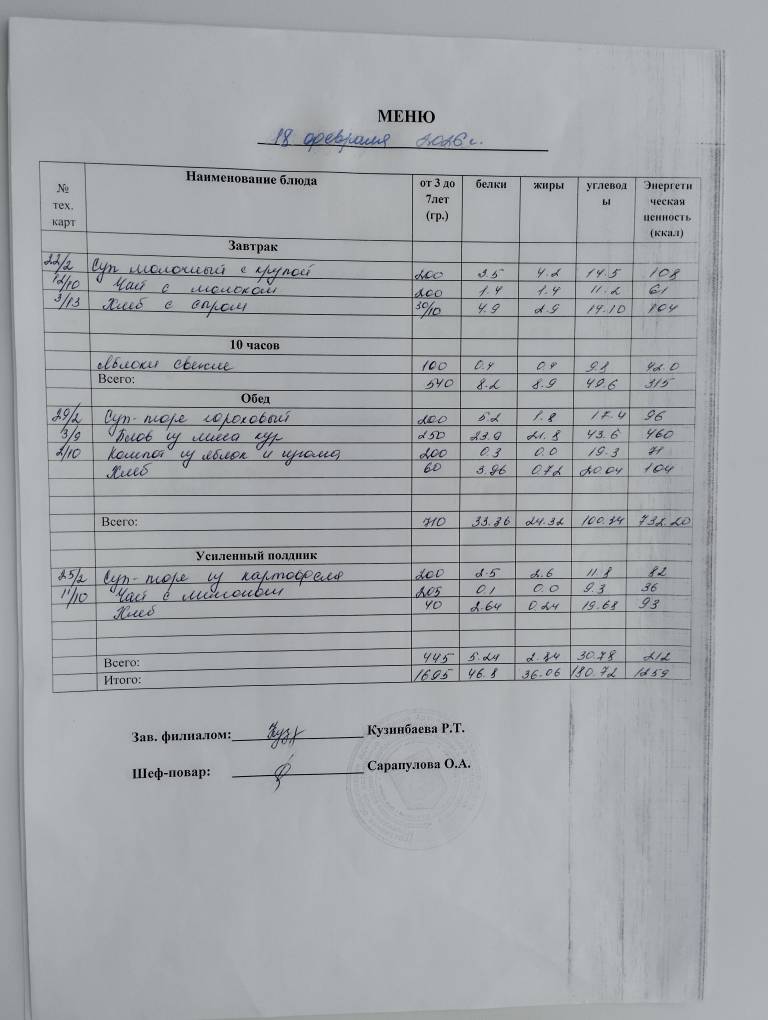 МЕНЮ
18 февраля 2026 г.
№ тех. карт Наименование блюда от 3 до 7лет (гр.) белки жиры углеводы Энергетическая ценность (ккал)
Завтрак
22/2 Суп молочный с крупой 200 3.5 4.2 14.5 108
12/10 Чай с молоком 200 1.4 1.4 11.2 61
3/13 Хлеб с сыром 30/10 4.9 2.9 14.10 104
10 часов
Яблоки свежие 100 0.4 0.4 9.8 42.0
Всего: 540 8.2 8.9 49.6 315
Обед
29/2 Суп-пюре гороховый 200 5.2 1.8 17.4 96
3/9 Плов из мяса кур 250 23.9 21.8 43.6 460
2/10 Компот из яблок и изюма 200 0.3 0.0 19.3 71
Хлеб 60 3.96 0.72 20.04 104
Всего: 710 33.36 24.32 100.34 732.20
Усиленный полдник
25/2 Суп-пюре из картофеля 200 2.5 2.6 11.8 82
11/10 Чай с лимоном 205 0.1 0.0 9.3 36
Хлеб 40 2.64 0.24 19.68 93
Всего: 445 5.24 2.84 30.78 212
Итого: 1695 46.8 36.06 180.72 1259
Зав. филиалом: Куз Кузинбаева Р.Т.
Шеф-повар: Сарапулова О.А.